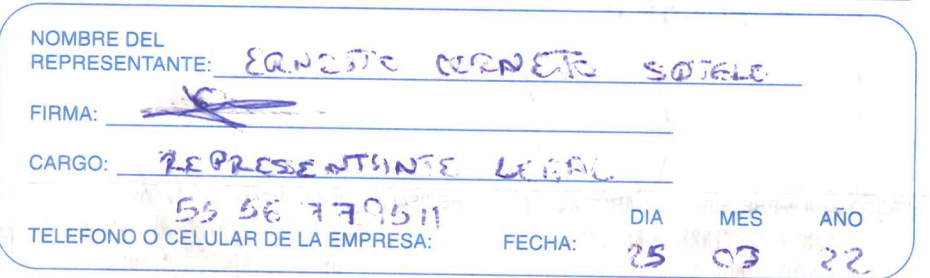 NOMBRE DEL
REPRESENTANTE: ERNESTO SOTELO
FIRMA:
CARGO: REPRESENTANTE LEGAL
55 56 779511
TELEFONO O CELULAR DE LA EMPRESA: FECHA: DIA MES AÑO
25 03 22